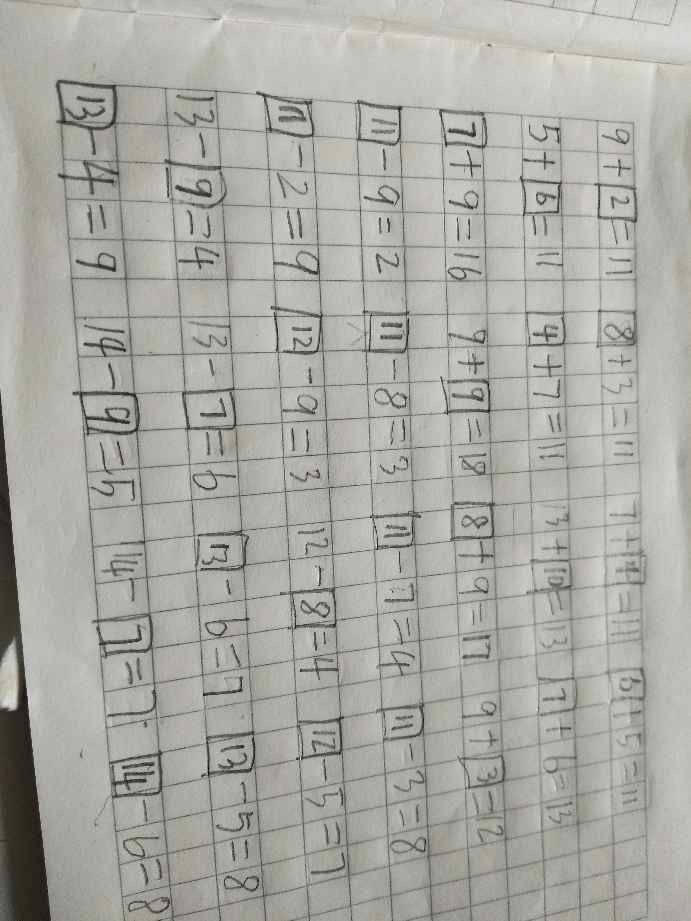 9+2=11 8+3=11 7+4=11 6+5=11
5+6=11 4+7=11 3+10=13 7+6=13
7+9=16 9+9=18 8+9=17 9+3=12
11-9=2 11-8=3 11-7=4 11-3=8
11-2=9 12-9=3 12-8=4 12-5=7
13-9=4 13-7=6 13-6=7 13-5=8
13-4=9 14-9=5 14-7=7 14-6=8